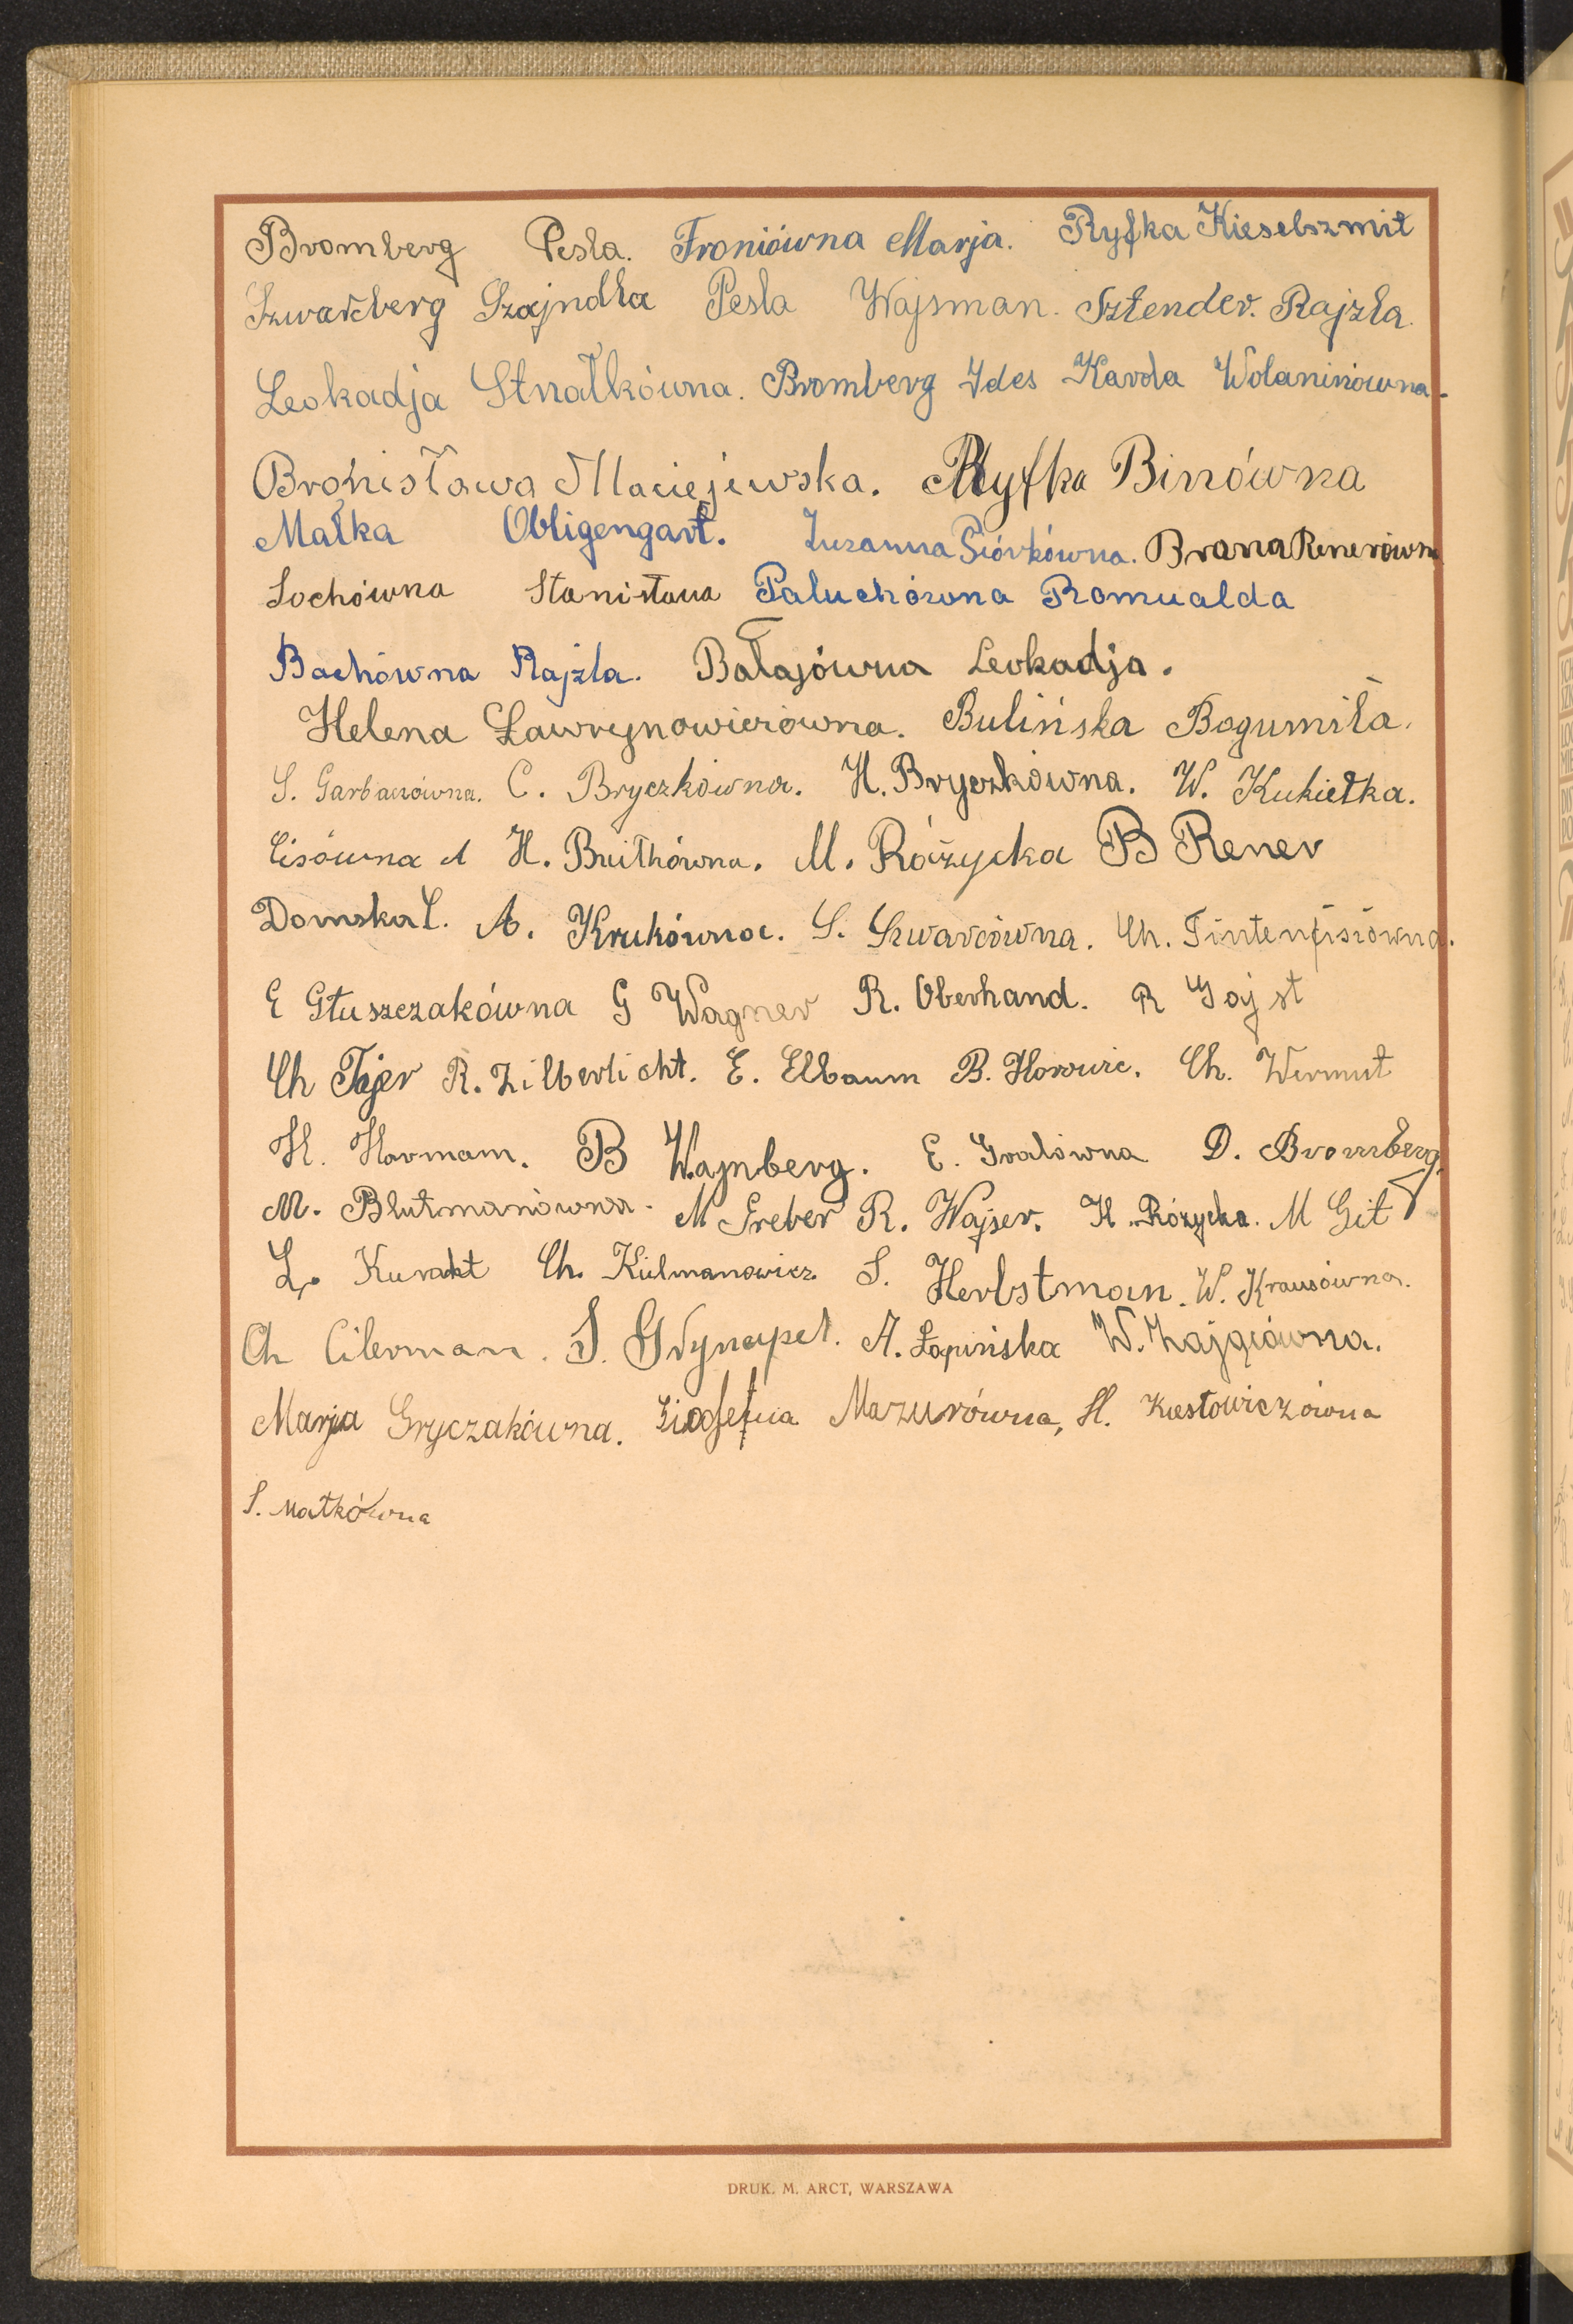 Bromberg Pesla. Froniówna Marja. Ryfka Kieselszmit
Szwarcberg Szajndla Pesla Wajsman. Sztender. Rajzla.
Leokadja Strzałkówna. Bromberg Ides Karola Wolaninówna.
Bronisława Maciejewska. Ryfka Binówna
Małka Obligengart. Zuzanna Piórkówna. Brana Renerówna
Sochówna Stanisława Paluchówna Romualda
Bachówna Rajzla. Bałajówna Leokadja.
Helena Ławrynowiczówna. Bulińska Bogumiła.
S. Garbaczówna. C. Bryczkówna. H. Bryczkówna. W. Kukiełka.
Cisówna A H. Buitkówna. M. Różycka B Rener
Domska L. A. Krukówna. S. Szwarcówna. Ch. Tintenfisiówna.
E Głuszczakówna G Wagner R. Oberhand. R Gajst
Ch Tajer R. Zilberlicht. E. Elbaum B. Horowic. Ch. Wermut
H. Harmam. B Wajnberg. E. Gralówna D. Bromberg.
M. Blutmanówna. M Greber R. Wajser. H. Różycka. M Git
L. Kurant Ch. Kielmanowicz S. Herbstman. W. Krausówna.
Ch Cilerman. S. Grynapel. A. Łapińska W. Zającówna.
Marja Gryczakówna. Mazurówna, H. Kiestowiczówna
S. Matkówna
DRUK. M. ARCT, WARSZAWA